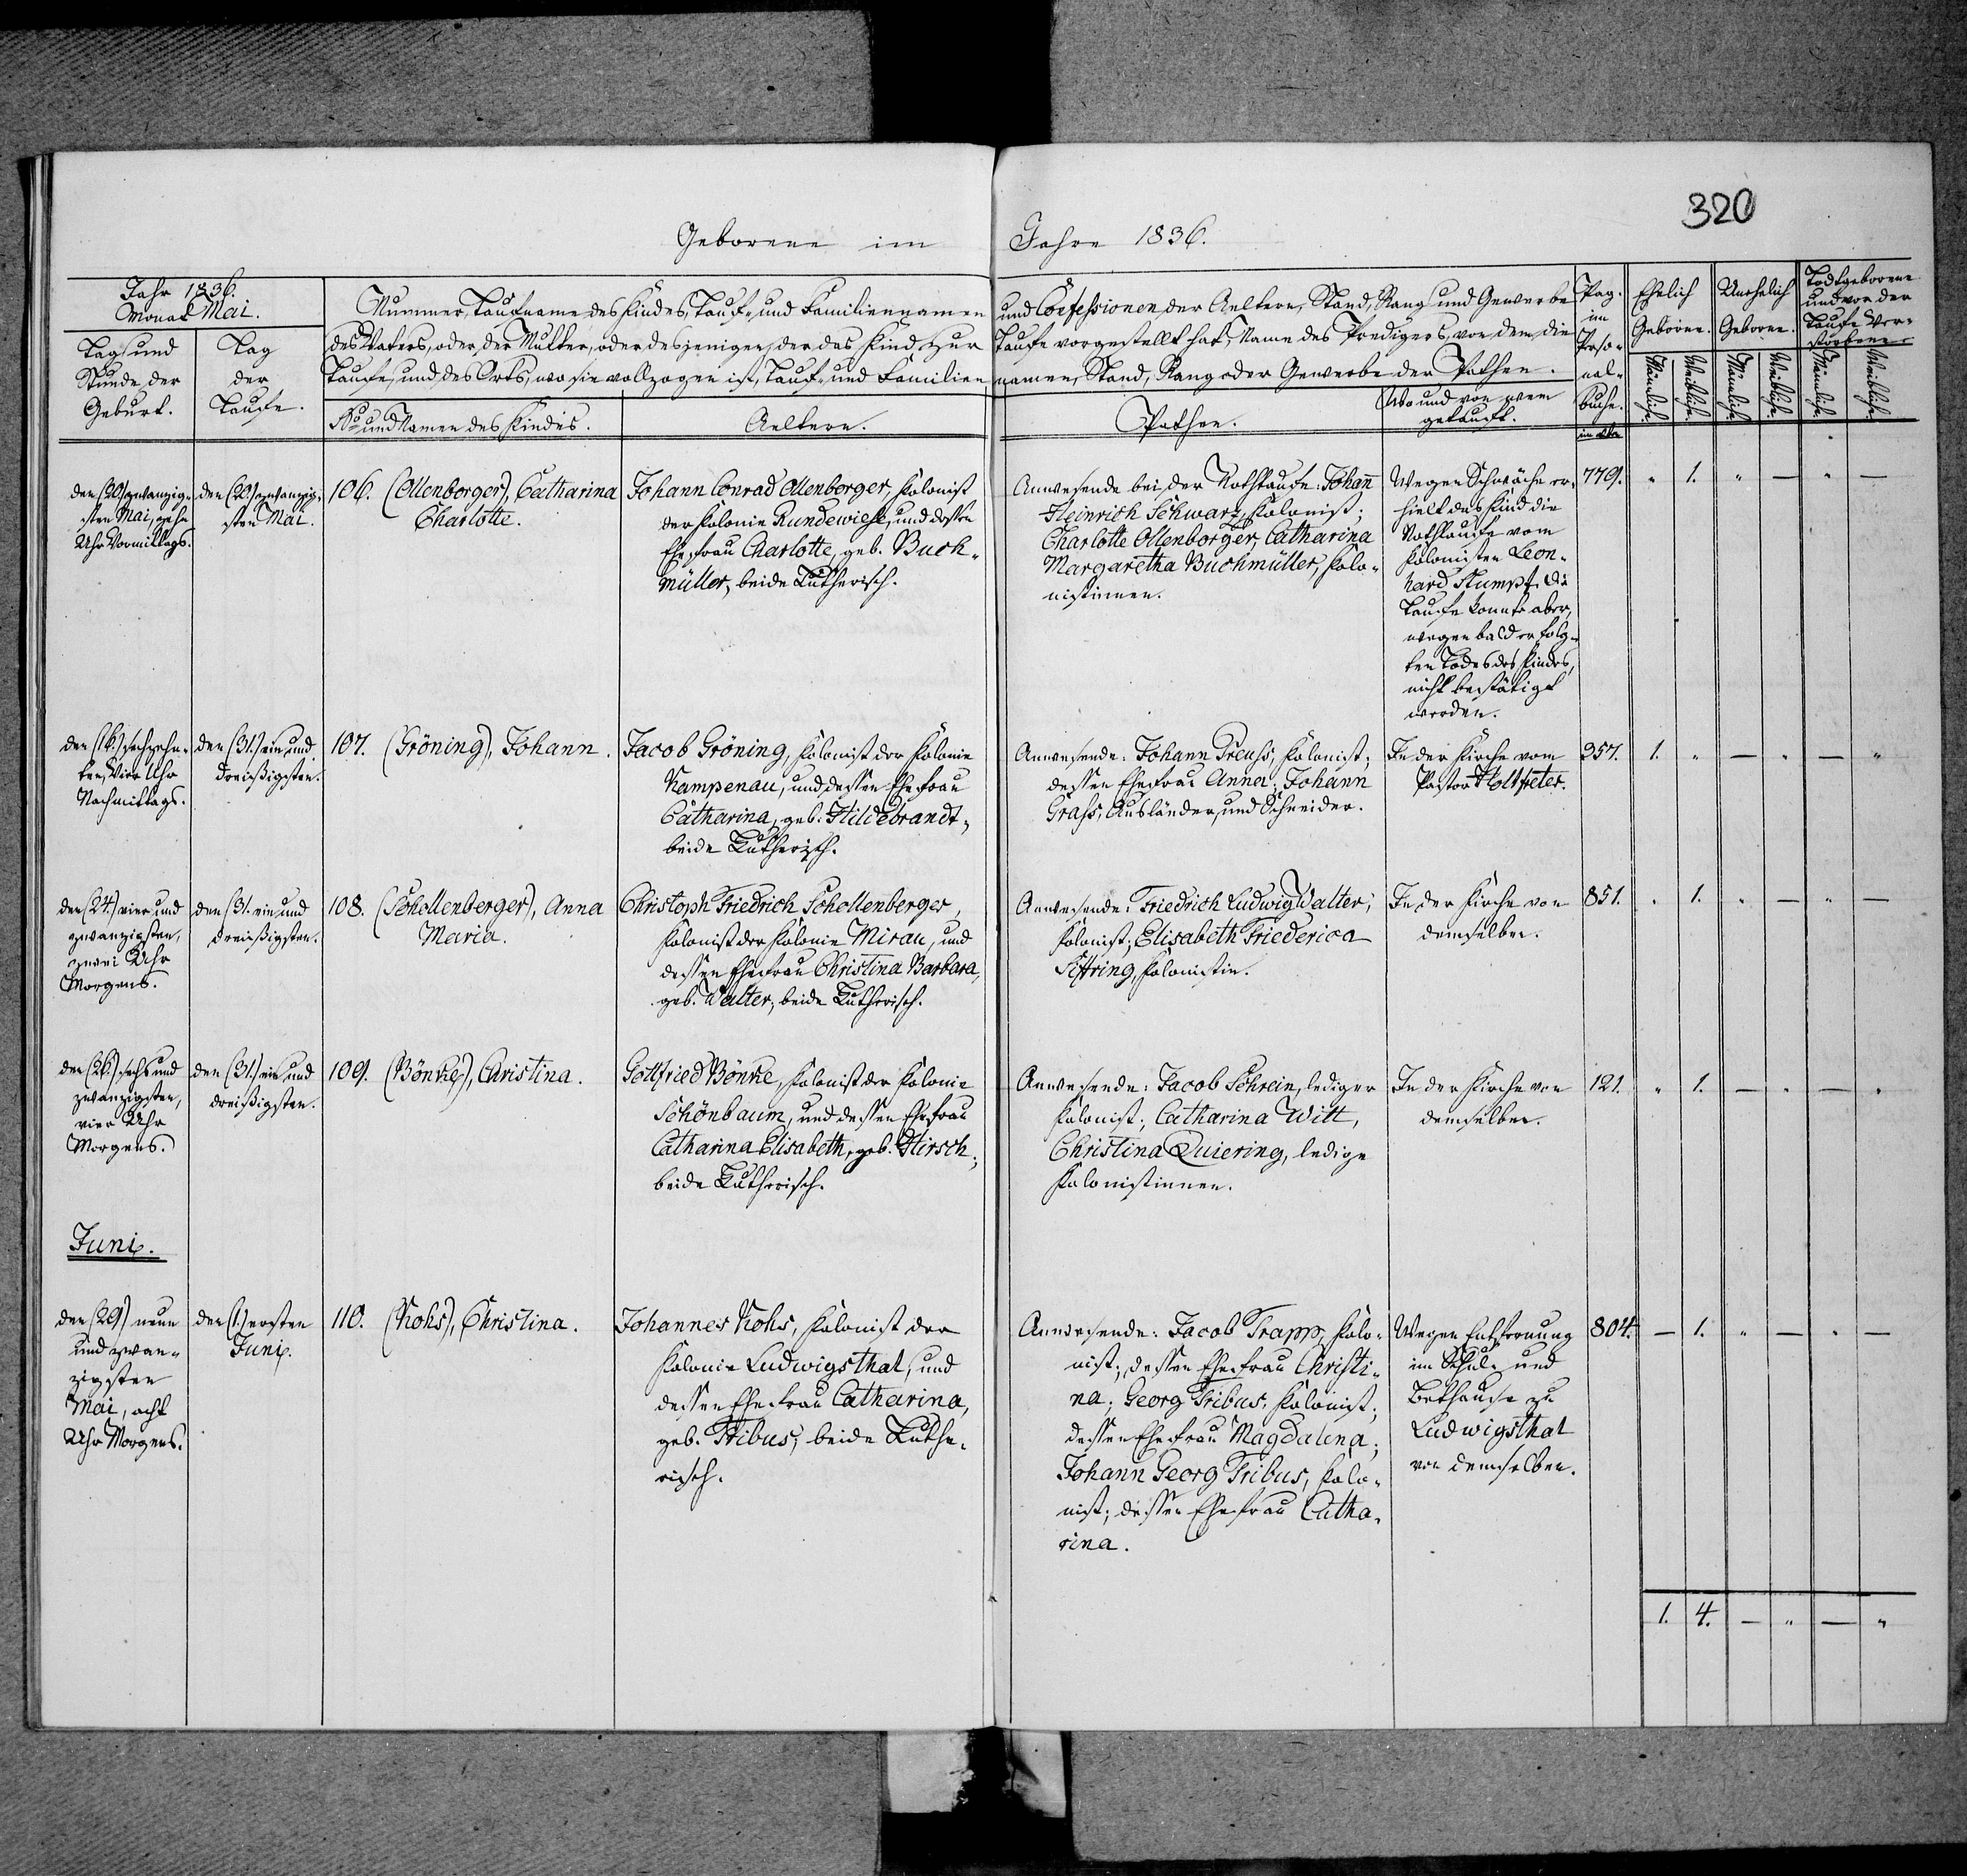 320
Geborene im Jahre 1836.
Jahr 1836.
Monat Mai.
Tag und
Stunde der
Geburt.
Tag
der
Taufe.
Nummer, Taufname des Kindes, Tauf- und Familiennamen und Confessionen der Aeltern, Stand, Rang und Gewerbe
des Vaters, oder der Mutter, oder desjenigen, der das Kind zur Taufe vorgestellt hat, Name des Predigers, von dem die
Taufe, und des Orts, wo sie vollzogen ist, Tauf- und Familiennamen, Stand, Rang oder Gewerbe der Pathen.
No und Namen des Kindes.
Aeltern.
Pathen.
Wo und von wem
getauft.
Pag.
im
Perso-
nal-
buche.
Ehelich
Geborene.
Unehelich
Geborene.
Todtgeborene
und vor der
Taufe Ver-
storbene.
Männlich.
Weiblich.
Männlich.
Weiblich.
Männlich.
Weiblich.
den (20.) zwanzig-
sten Mai, zehn
Uhr Vormittags.
den (20.) zwanzig-
sten Mai.
106. (Ollenborger), Catharina
Charlotte.
Johann Conrad Ollenborger, Kolonist
der Kolonie Rundewiese, und dessen
Ehefrau Charlotte, geb. Buch-
müller, beide Lutherisch.
Anwesende bei der Nothtaufe: Johann
Heinrich Schwarz, Kolonist;
Charlotte Ollenborger, Catharina
Margaretha Buchmüller, Kolo-
nistinnen.
Wegen Schwäche er-
hielt das Kind die
Nothtaufe vom
Kolonisten Leon-
hard Stumpf. Die
Taufe konnte aber,
wegen bald erfolg-
ten Todes des Kindes,
nicht bestätigt
werden.
779. " 1. " — " —
den (16.) sechzehn-
ten, Vier Uhr
Nachmittags.
den (31.) ein und
dreißigsten.
107. (Gröning), Johann.
Jacob Gröning, Kolonist der Kolonie
Kampenau, und dessen Ehefrau
Catharina, geb. Hildebrandt,
beide Lutherisch.
Anwesende: Johann Preuss, Kolonist;
dessen Ehefrau Anna; Johann
Grass, Ausländer, und Schneider.
In der Kirche vom
Pastor Holtfreter.
357. 1. " — " — "
den (24.) vier und
zwanzigsten,
zwei Uhr
Morgens.
den (31. ein und
dreißigsten.
108. (Schollenberger), Anna
Maria.
Christoph Friedrich Schollenberger,
Kolonist der Kolonie Mirau, und
dessen Ehefrau Christina Barbara,
geb. Walter, beide Lutherisch.
Anwesende: Friedrich Ludwig Walter,
Kolonist; Elisabeth Friederica
Siffring, Kolonistin.
In der Kirche von
demselben.
851. " 1. " — " —
den (26.) sechs und
zwanzigsten,
vier Uhr
Morgens.
den (31.) ein und
dreißigsten.
109. (Bönke), Christina.
Gottfried Bönke, Kolonist der Kolonie
Schönbaum, und dessen Ehefrau
Catharina Elisabeth, geb. Hirsch,
beide Lutherisch.
Anwesende: Jacob Schrein, lediger
Kolonist; Catharina Witt,
Christina Quiering, ledige
Kolonistinnen.
In der Kirche von
demselben.
121. " 1. — " — "
Juni.
den (29.) neun
und zwan-
zigsten
Mai, acht
Uhr Morgens.
den (1.) ersten
Juni.
110. (Kohs), Christina.
Johannes Kohs, Kolonist der
Kolonie Ludwigsthal, und
dessen Ehefrau Catharina,
geb. Tribus, beide Luthe-
risch.
Anwesende: Jacob Trapp, Kolo-
nist; dessen Ehefrau Christi-
na; Georg Tribus, Kolonist;
dessen Ehefrau Magdalena;
Johann Georg Tribus, Kolo-
nist; dessen Ehefrau Catha-
rina.
Wegen Entfernung
im Schul- und
Bethause zu
Ludwigsthal
von demselben.
804. — 1. " — " —
1. 4. — " — "